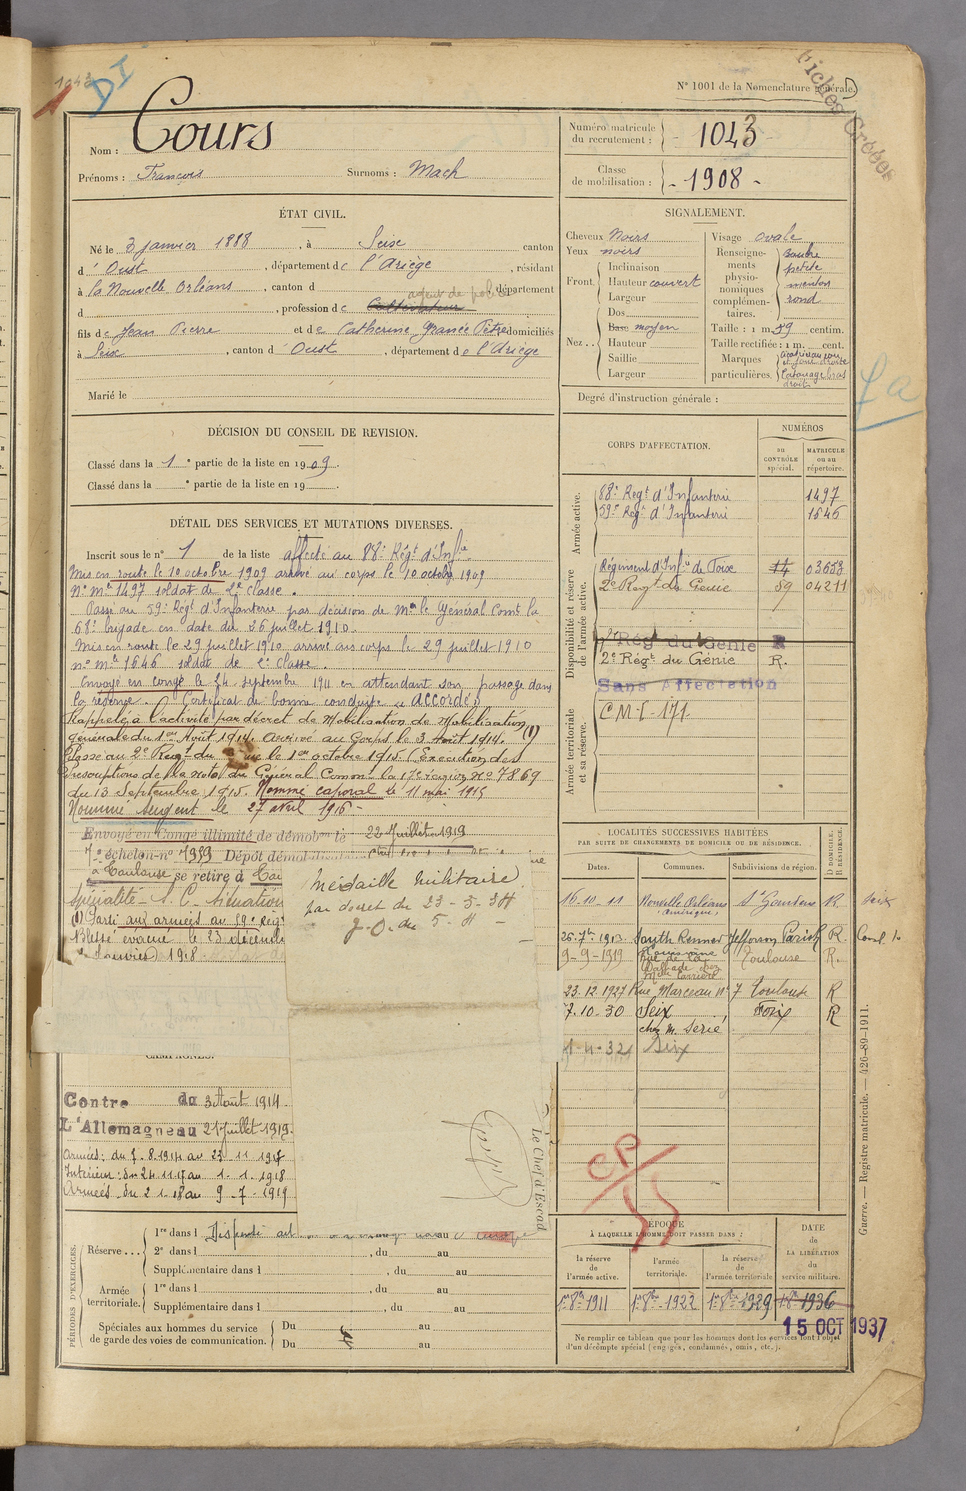 1043
DI
N° 1001 de la Nomenclature générale.
Fiches Créées
Nom : Cours
Prénoms : François Surnoms : Mach
Numéro matricule du recrutement : 1043
Classe de mobilisation : 1908
ÉTAT CIVIL.
Né le 3 janvier 1888, à Seix canton
d'Oust, département de l'Ariège, résidant
à la Nouvelle Orléans, canton d département
d , profession de Cultivateur agent de police
fils de Jean Pierre et de Catherine Granée Pètre domiciliés
à Seix, canton d'Oust, département de l'Ariège
Marié le
SIGNALEMENT.
Cheveux Noirs
Yeux noirs
Front. Inclinaison
Hauteur couvert
Largeur
Nez.. Dos
Base moyen
Hauteur
Saillie
Largeur
Visage ovale
Renseignements physionomiques complémentaires.
petite
menton
rond
Taille : 1 m. 59 centim.
Taille rectifiée : 1 m. cent.
Marques particulières.
tatouage bras
droit
Degré d'instruction générale :
DÉCISION DU CONSEIL DE REVISION.
Classé dans la 1e partie de la liste en 1909.
Classé dans la e partie de la liste en 19 .
DÉTAIL DES SERVICES ET MUTATIONS DIVERSES.
Inscrit sous le n° 1 de la liste affecté au 88e Régt d'Infie
Mis en route le 10 octobre 1909 arrivé au corps le 10 octobre 1909
N° Mle 1497 soldat de 2e classe.
Passé au 59e Regt d'Infanterie par décision de Mr le Général Comt la
68e brigade en date du 26 juillet 1910.
Mis en route le 29 juillet 1910 arrivé au corps le 29 juillet 1910
n° mle 1646 soldat de 2e classe.
Envoyé en congé le 24 septembre 1911 en attendant son passage dans
la réserve. Certificat de bonne conduite "ACCORDÉ"
Rappelé à l'activité par décret de Mobilisation de Mobilisation
générale du 1er Août 1914. Arrivé au Corps le 3 Août 1914. (1)
Passé au 2e Regt du le 1er octobre 1915 (Execution des
Prescriptions de la note du Général Commt la 17e région n° 7869
du 13 Septembre 1915. Nommé caporal le 11 mai 1915
Nommé sergent le 27 avril 1916 -
Envoyé en Congé illimité de démobon le 22 Juillet 1919
7e échelon n° 7959 Dépôt démobilisateur
à Toulouse se retire à
spécialité - S.C. - situation
(1) Parti aux armées au 59e Regt
Blessé évacué le 23 décembre
1918
Médaille militaire
par décret du 23-5-34
J.O. du 5-4 -
Le Chef d'Escad
CORPS D'AFFECTATION.
NUMÉROS
au CONTRÔLE spécial.
MATRICULE ou au répertoire.
Armée active.
88e Regt d'Infanterie 1497
59e Regt d'Infanterie 1646
Disponibilité et réserve de l'armée active.
Régiment d'Infie de Foix 14 03653
2e Regt de Génie 59 04211
2e Régt du Génie R
2e Régt du Génie R.
Sans Affectation
Armée territoriale et sa réserve.
C M I - 171
LOCALITÉS SUCCESSIVES HABITÉES
PAR SUITE DE CHANGEMENTS DE DOMICILE OU DE RÉSIDENCE.
Dates. Communes. Subdivisions de région. D DOMICILE. R RÉSIDENCE.
16-10-11 Nouvelle Orléans (Amérique) St Gaudens R Seix
26-7bre 1913 South Kenner Jefferson Parish R.
Louisiane
9-9-1919 Rue de la Dalbade chez Mlle Carrière Toulouse R.
23.12.1927 Rue Marceau n° 7 Toulouse R
7-10-30 Seix Foix R
chez M. Serié
1-4-32 Seix
CAMPAGNES.
Contre du 3 Août 1914
L'Allemagne au 21 Juillet 1919
Armées : du 7-8-1914 au 23-11-1917
Intérieur : du 24-11-17 au 1-1-1918
Armées du 2-1-18 au 9-7-1919
CP/55
PÉRIODES D'EXERCICES.
Réserve... 1re dans l
2e dans l , du au
Supplémentaire dans l , du au
Armée territoriale. 1re dans l , du au
Supplémentaire dans l , du au
Spéciales aux hommes du service de garde des voies de communication. Du au
Du au
ÉPOQUE
À LAQUELLE L'HOMME DOIT PASSER DANS :
la réserve de l'armée active. l'armée territoriale. la réserve de l'armée territoriale
DATE de LA LIBÉRATION du service militaire.
1er 8bre 1911 1er 8bre 1922 1er 8bre 1929 1er 8bre 1936
15 OCT 1937
Ne remplir ce tableau que pour les hommes dont les services font l'objet
d'un décompte spécial (engagés, condamnés, omis, etc.).
Guerre. — Registre matricule. — 426-89-1911.